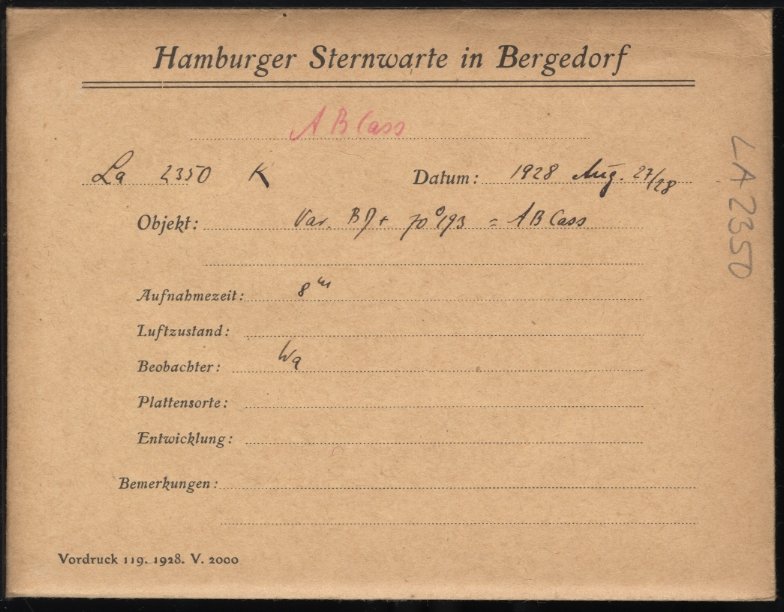 Hamburger Sternwarte in Bergedorf
AB Cass
La 2350 K Datum: 1928 Aug. 27/28
Objekt: Var. BD+ 70°193 = AB Cass
Aufnahmezeit: 8m
Luftzustand:
Beobachter: Wa
Plattensorte:
Entwicklung:
Bemerkungen:
Vordruck 119. 1928. V. 2000
LA 2350